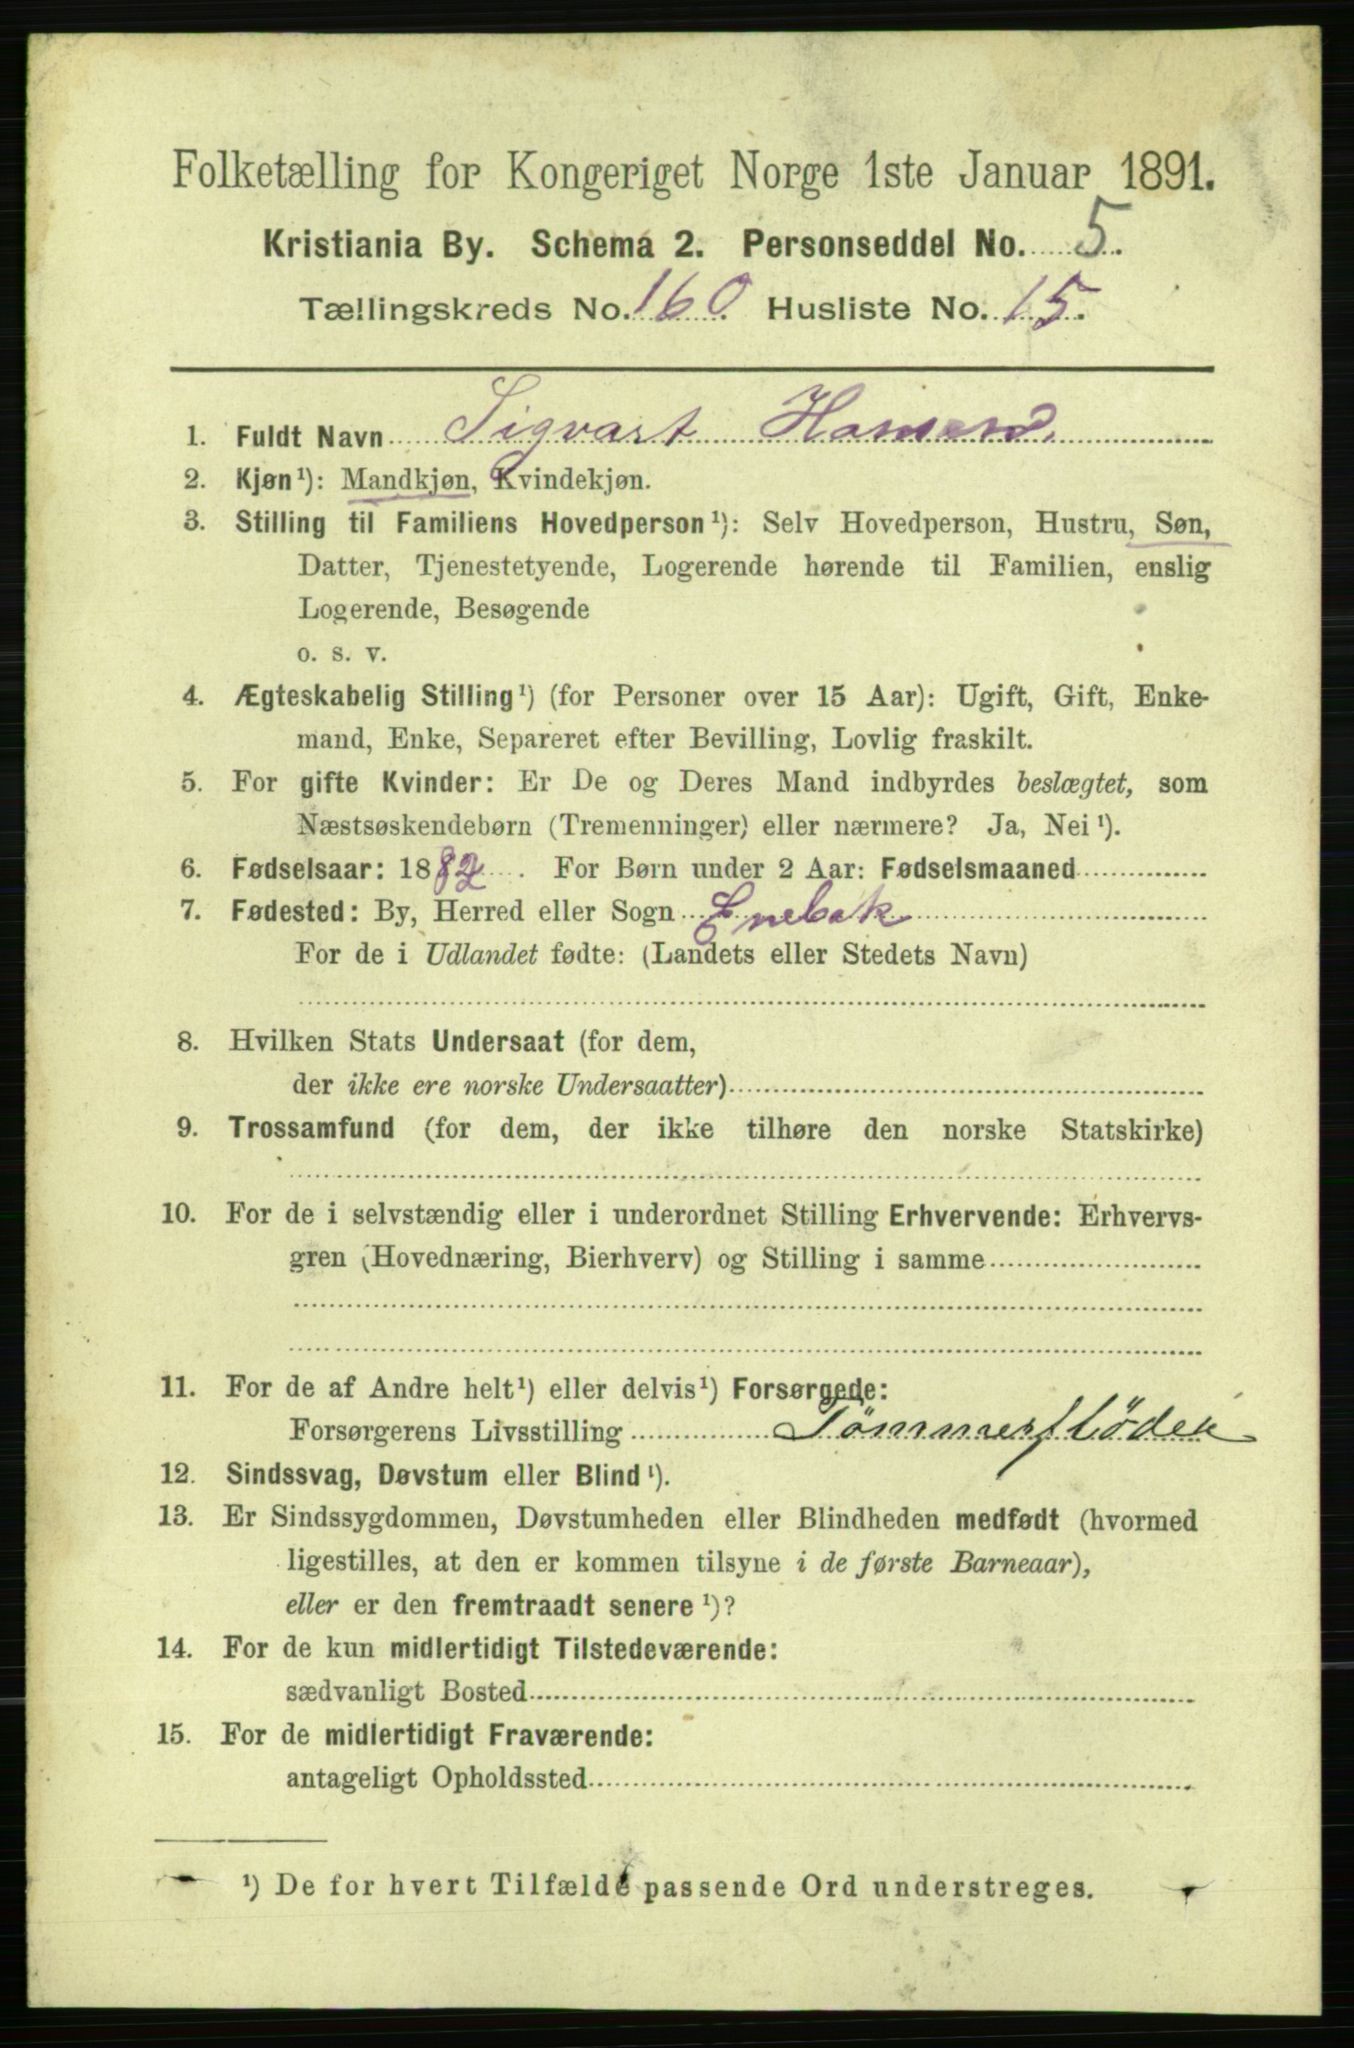 Folketælling for Kongeriget Norge 1ste Januar 1891.
Kristiania By. Schema 2. Personseddel No. 5.
Tællingskreds No. 160. Husliste No. 15.
1. Fuldt Navn Sigvart Hansen.
2. Kjøn¹): Mandkjøn, Kvindekjøn.
3. Stilling til Familiens Hovedperson¹): Selv Hovedperson, Hustru, Søn,
Datter, Tjenestetyende, Logerende hørende til Familien, enslig
Logerende, Besøgende
o. s. v.
4. Ægteskabelig Stilling¹) (for Personer over 15 Aar): Ugift, Gift, Enke-
mand, Enke, Separeret efter Bevilling, Lovlig fraskilt.
5. For gifte Kvinder: Er De og Deres Mand indbyrdes beslægtet, som
Næstsøskendebørn (Tremenninger) eller nærmere? Ja, Nei¹).
6. Fødselsaar: 1882. For Børn under 2 Aar: Fødselsmaaned
7. Fødested: By, Herred eller Sogn Enebak
For de i Udlandet fødte: (Landets eller Stedets Navn)
8. Hvilken Stats Undersaat (for dem,
der ikke ere norske Undersaatter)
9. Trossamfund (for dem, der ikke tilhøre den norske Statskirke)
10. For de i selvstændig eller i underordnet Stilling Erhvervende: Erhvervs-
gren (Hovednæring, Bierhverv) og Stilling i samme
11. For de af Andre helt¹) eller delvis¹) Forsørgede:
Forsørgerens Livsstilling Tömmerflöder
12. Sindssvag, Døvstum eller Blind¹).
13. Er Sindssygdommen, Døvstumheden eller Blindheden medfødt (hvormed
ligestilles, at den er kommen tilsyne i de første Barneaar),
eller er den fremtraadt senere¹)?
14. For de kun midlertidigt Tilstedeværende:
sædvanligt Bosted
15. For de midlertidigt Fraværende:
antageligt Opholdssted
¹) De for hvert Tilfælde passende Ord understreges.